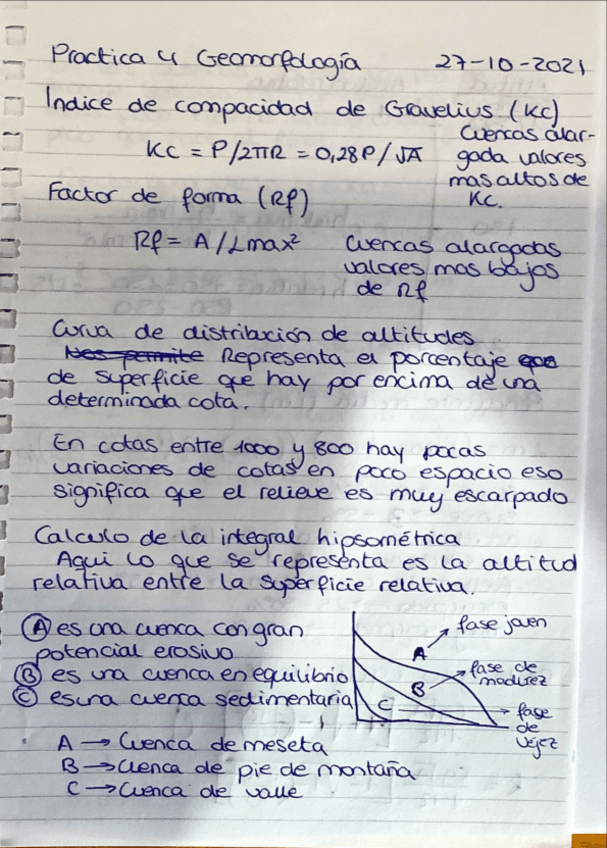 Practica 4 Geomorfología 27-10-2021
Indice de compacidad de Gravelius (Kc)
Kc = P/2πR = 0,28P/√A
Cuencas alar-
gada valores
mas altos de
Kc.
Factor de forma (Rf)
Rf = A/Lmax²
Cuencas alargadas
valores mas bajos
de Rf
Curva de distribución de altitudes
Nos permite Representa el porcentaje que
de superficie que hay por encima de una
determinada cota.
En cotas entre 1000 y 800 hay pocas
variaciones de cotas en poco espacio eso
significa que el relieve es muy escarpado
Calculo de la integral hipsométrica
Aqui lo que se representa es la altitud
relativa entre la superficie relativa.
A es una cuenca con gran
potencial erosivo
B es una cuenca en equilibrio
C es una cuenca sedimentaria
A
B
C
fase joven
fase de
madurez
fase
de
vejez
A → Cuenca de meseta
B → Cuenca de pie de montaña
C → Cuenca de valle